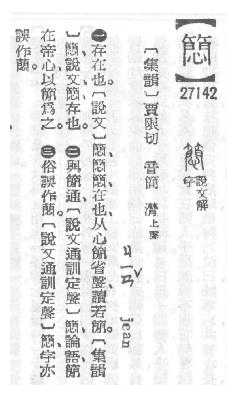 27142 說文解字
〔集韻〕賈限切 音簡 潸上聲 ㄐㄧㄢˇ jean
㊀存在也。〔說文〕簡簡在也、从心簡省聲、讀若簡。〔集韻
〕、說文簡存也。㊁與簡通。〔說文通訓定聲〕、論語簡
在帝心以簡爲之。㊂俗誤作蕑。〔說文通訓定聲〕、字亦
誤作蕑。